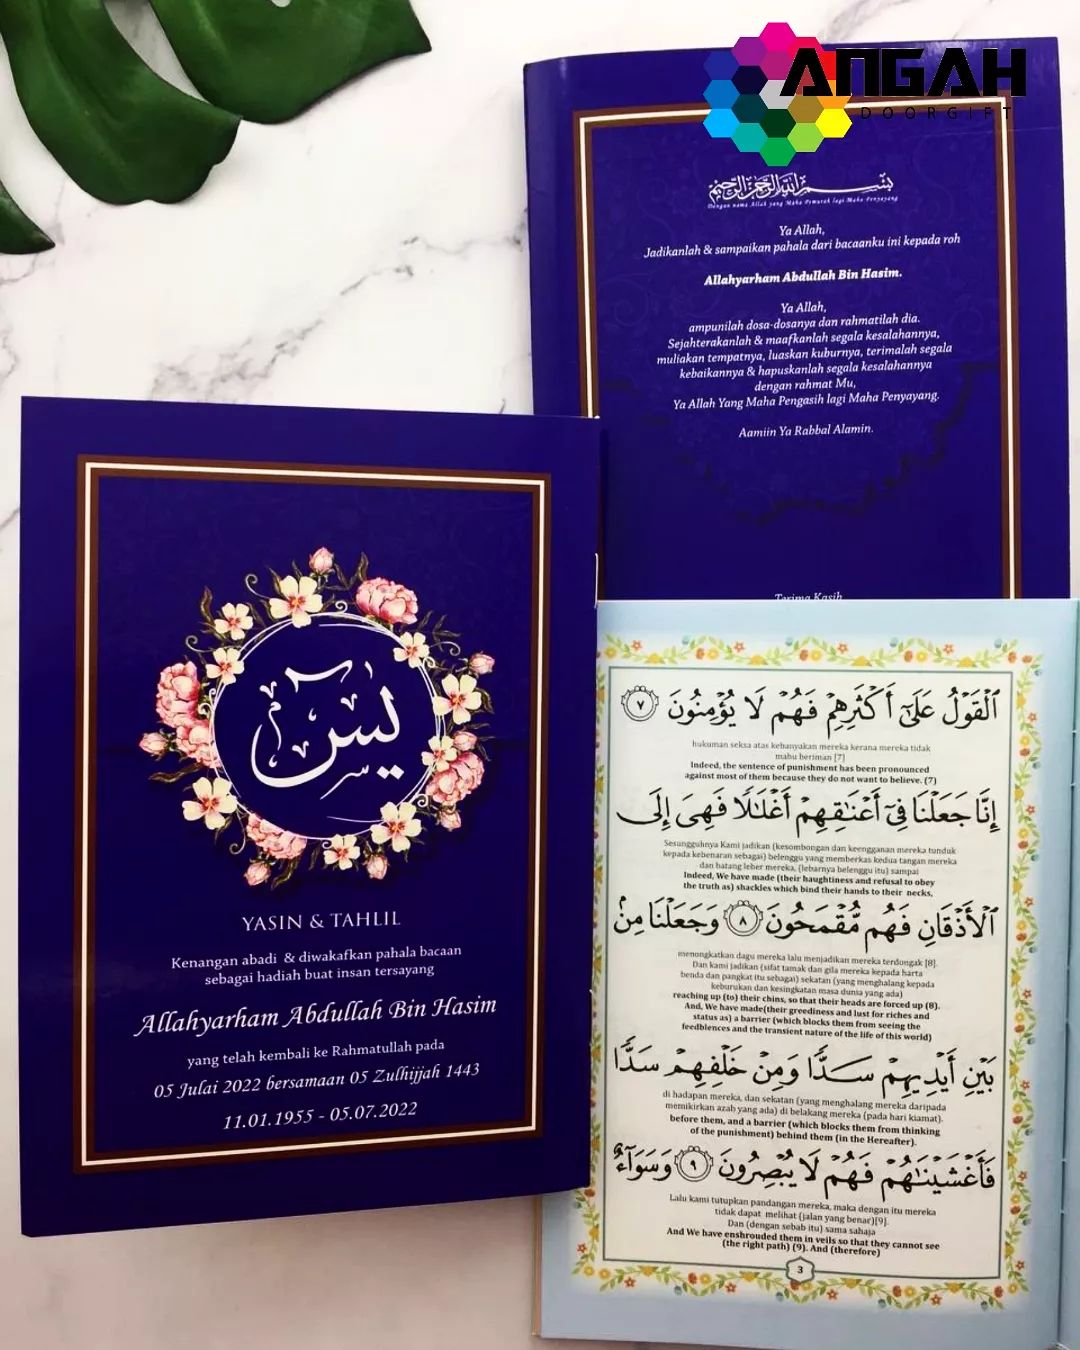 ANGAH
DOORGIFT
بسم الله الرحمن الرحيم
Dengan nama Allah yang Maha Pemurah lagi Maha Penyayang
Ya Allah,
Jadikanlah & sampaikan pahala dari bacaanku ini kepada roh
Allahyarham Abdullah Bin Hasim.
Ya Allah,
ampunilah dosa-dosanya dan rahmatilah dia.
Sejahterakanlah & maafkanlah segala kesalahannya,
muliakan tempatnya, luaskan kuburnya, terimalah segala
kebaikannya & hapuskanlah segala kesalahannya
dengan rahmat Mu,
Ya Allah Yang Maha Pengasih lagi Maha Penyayang.
Aamiin Ya Rabbal Alamin.
Terima Kasih
يس
YASIN & TAHLIL
Kenangan abadi & diwakafkan pahala bacaan
sebagai hadiah buat insan tersayang
Allahyarham Abdullah Bin Hasim
yang telah kembali ke Rahmatullah pada
05 Julai 2022 bersamaan 05 Zulhijjah 1443
11.01.1955 - 05.07.2022
الْقَوْلُ عَلَىٰ أَكْثَرِهِمْ فَهُمْ لَا يُؤْمِنُونَ ٧
hukuman seksa atas kebanyakan mereka kerana mereka tidak
mahu beriman [7]
Indeed, the sentence of punishment has been pronounced
against most of them because they do not want to believe. (7)
إِنَّا جَعَلْنَا فِىٓ أَعْنَٰقِهِمْ أَغْلَٰلًا فَهِىَ إِلَى
Sesungguhnya Kami jadikan (kesombongan dan keengganan mereka tunduk
kepada kebenaran sebagai) belenggu yang memberkas kedua tangan mereka
dan batang leher mereka, (lebarnya belenggu itu) sampai
Indeed, We have made (their haughtiness and refusal to obey
the truth as) shackles which bind their hands to their necks,
الْأَذْقَانِ فَهُم مُّقْمَحُونَ ٨ وَجَعَلْنَا مِنۢ
menongkatkan dagu mereka lalu menjadikan mereka terdongak [8].
Dan kami jadikan (sifat tamak dan gila mereka kepada harta
benda dan pangkat itu sebagai) sekatan (yang menghalang kepada
keburukan dan kesingkatan masa dunia yang ada)
reaching up (to) their chins, so that their heads are forced up (8).
And, We have made(their greediness and lust for riches and
status as) a barrier (which blocks them from seeing the
feedblences and the transient nature of the life of this world)
بَيْنِ أَيْدِيهِمْ سَدًّا وَمِنْ خَلْفِهِمْ سَدًّا
di hadapan mereka, dan sekatan (yang menghalang mereka daripada
memikirkan azab yang ada) di belakang mereka (pada hari kiamat).
before them, and a barrier (which blocks them from thinking
of the punishment) behind them (in the Hereafter).
فَأَغْشَيْنَٰهُمْ فَهُمْ لَا يُبْصِرُونَ ٩ وَسَوَآءٌ
Lalu kami tutupkan pandangan mereka, maka dengan itu mereka
tidak dapat melihat (jalan yang benar)[9].
Dan (dengan sebab itu) sama sahaja
And We have enshrouded them in veils so that they cannot see
(the right path) (9). And (therefore)
3